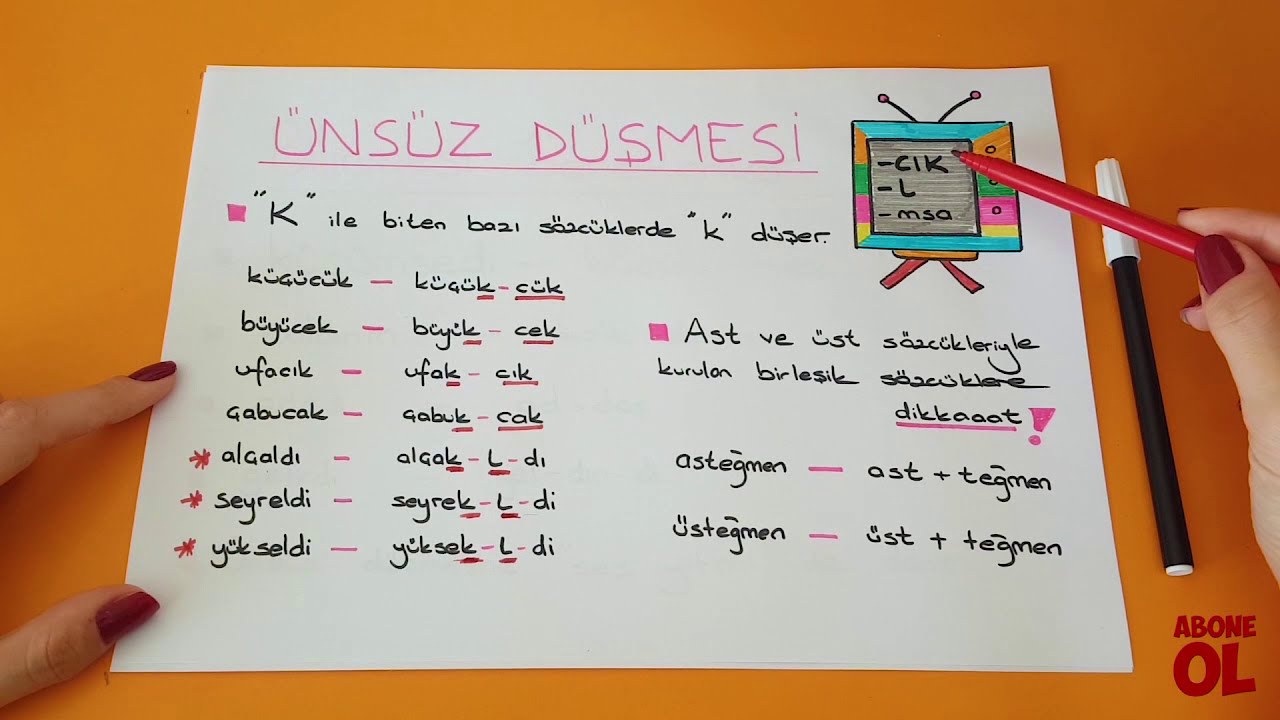 ÜNSÜZ DÜŞMESİ
-CIK
-L
-msa
"K" ile biten bazı sözcüklerde "k" düşer.
küçücük — küçük-cük
büyücek — büyük-cek
ufacık — ufak-cık
çabucak — çabuk-cak
* alçaldı — alçak-L-dı
* seyreldi — seyrek-L-di
* yükseldi — yüksek-L-di
Ast ve üst sözcükleriyle
kurulan birleşik sözcüklere
dikkaaat!
asteğmen — ast + teğmen
üsteğmen — üst + teğmen
ABONE
OL